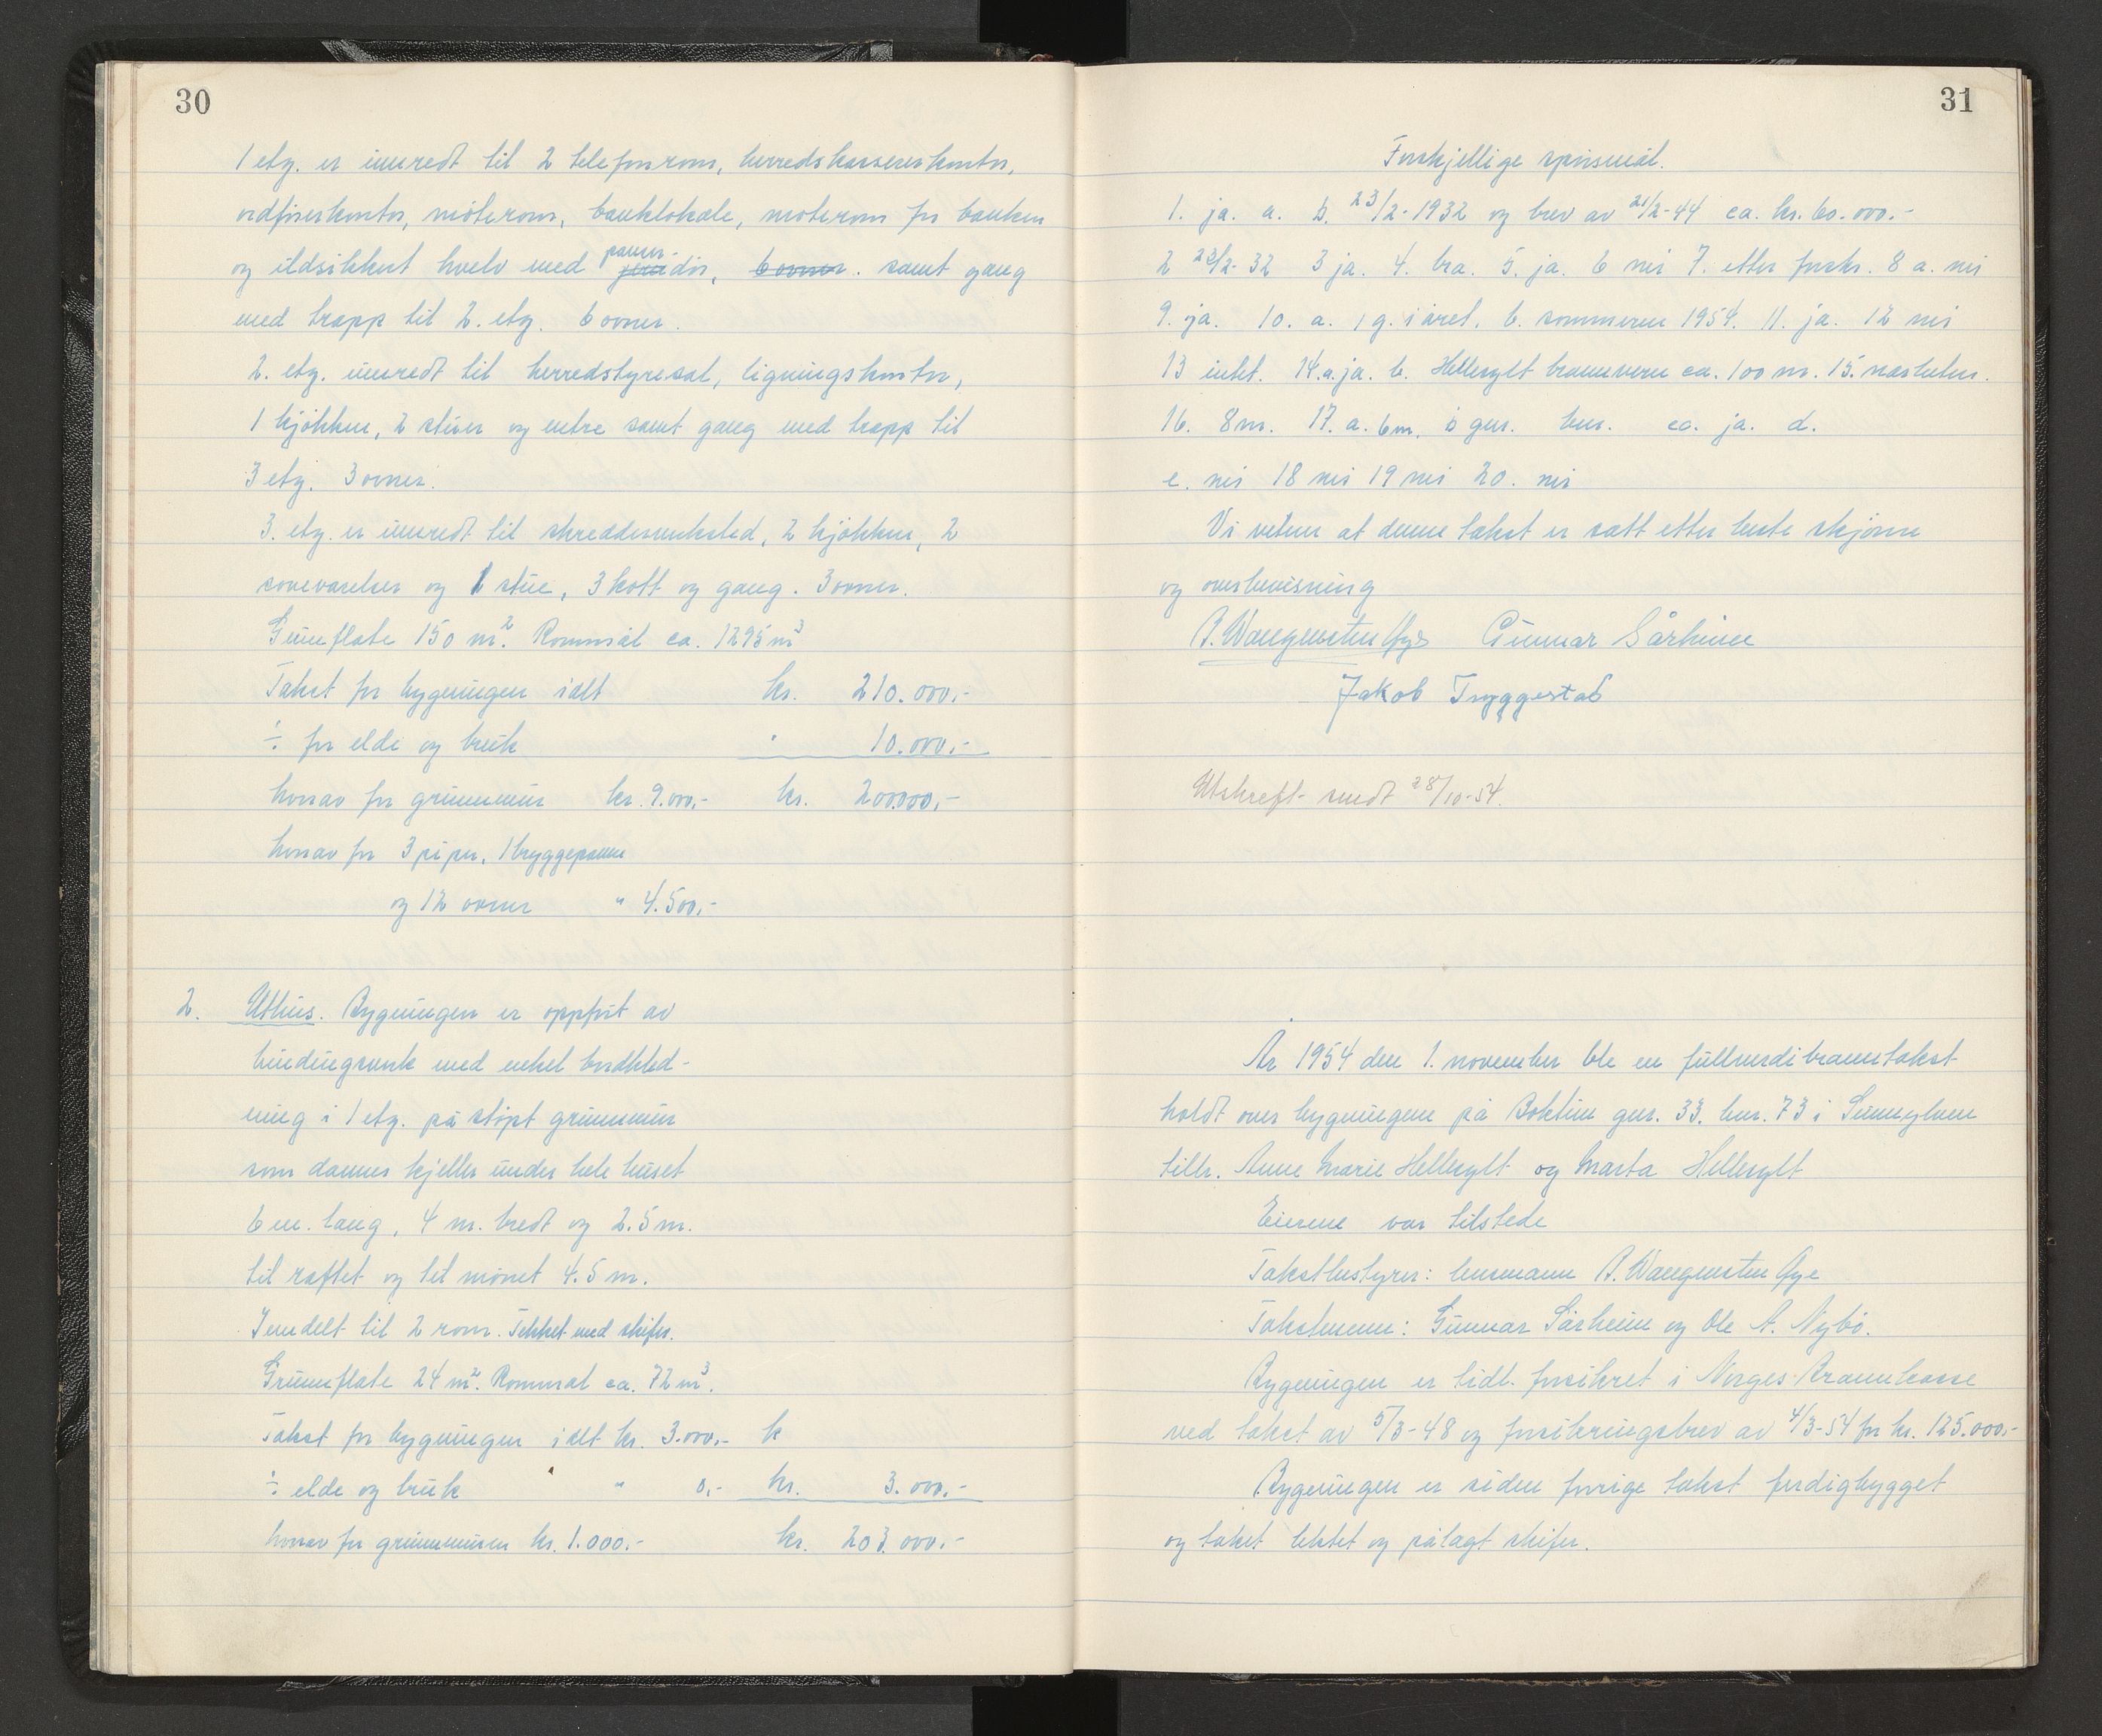 30
1 etg. er innredt til 2 telefonrom, herredskassererkontor,
ordførerkontor, møterom, banklokale, møterom for banken
og ildsikkert hvelv med panser- dør, 6 ovner. samt gang
med trapp til 2. etg. 6 ovner.
2. etg. innredt til herredstyresal, ligningskontor,
1 kjøkken, 2 stuer og entre samt gang med trapp til
3 etg. 3 ovner.
3. etg. er innredt til skredderverksted, 2 kjøkken, 2
soveværelser og 1 stue, 3 kott og gang. 3 ovner.
Grunnflate 150 m². Rommål ca. 1295 m³
Takst for bygningen ialt kr. 210.000,-
÷ for elde og bruk " 10.000,-
hvorav for grunnmur kr. 9.000,- kr. 200.000,-
hvorav for 3 piper, 1 bryggepanne
og 12 ovner " 4.500,-
2. Uthus. Bygningen er oppført av
bindingsverk med enkel bordkled-
ning i 1 etg. på støpt grunnmur
som danner kjeller under hele huset
6 m. lang, 4 m. bredt og 2.5 m.
til raftet og til mønet 4.5 m.
Inndelt til 2 rom. Tekket med skifer.
Grunnflate 24 m². Rommål ca. 72 m³.
Takst for bygningen ialt kr. 3.000,- k
÷ elde og bruk " 0,- kr. 3.000,-
hvorav for grunnmuren kr. 1.000.- kr. 203.000,-
31
Forskjellige spørsmål.
1. ja. a. b. 23/2-1932 og brev av 21/2-44 ca. kr. 60.000.-
2 23/2-32 3 ja. 4. bra. 5. ja. 6 nei 7. etter forskr. 8 a. nei
9. ja. 10. a. 1 g. i året. b. sommeren 1954. 11. ja. 12 nei
13 intet. 14. a. ja. b. Hellesylt brannvern ca. 100 m. 15. naboheten.
16. 8 m. 17. a. 6 m. b gnr. bnr. ca. ja. d.
e. nei 18 nei 19 nei 20. nei
Vi vitner at denne takst er satt etter beste skjønn
og overbevisning
A. Wangensten Øye Gunnar Sårheim
Jakob Tryggestad
Utskrift sendt 28/10-54.
År 1954 den 1. november ble en fullverdibranntakst
holdt over bygningene på Boktun gnr. 33. bnr. 73 i Sunnylven
tilh. Anne Marie Hellesylt og Marta Hellesylt
Eierene var tilstede
Takstbestyrer: lensmann A. Wangensten Øye
Takstmenn: Gunnar Sårheim og Ole A. Nybø.
Bygningen er tidl. forsikret i Norges Brannkasse
ved takst av 5/3-48 og forsikringsbrev av 4/3-54 for kr. 125.000,-
Bygningen er siden forrige takst ferdigbygget
og taket lektet og pålagt skifer.